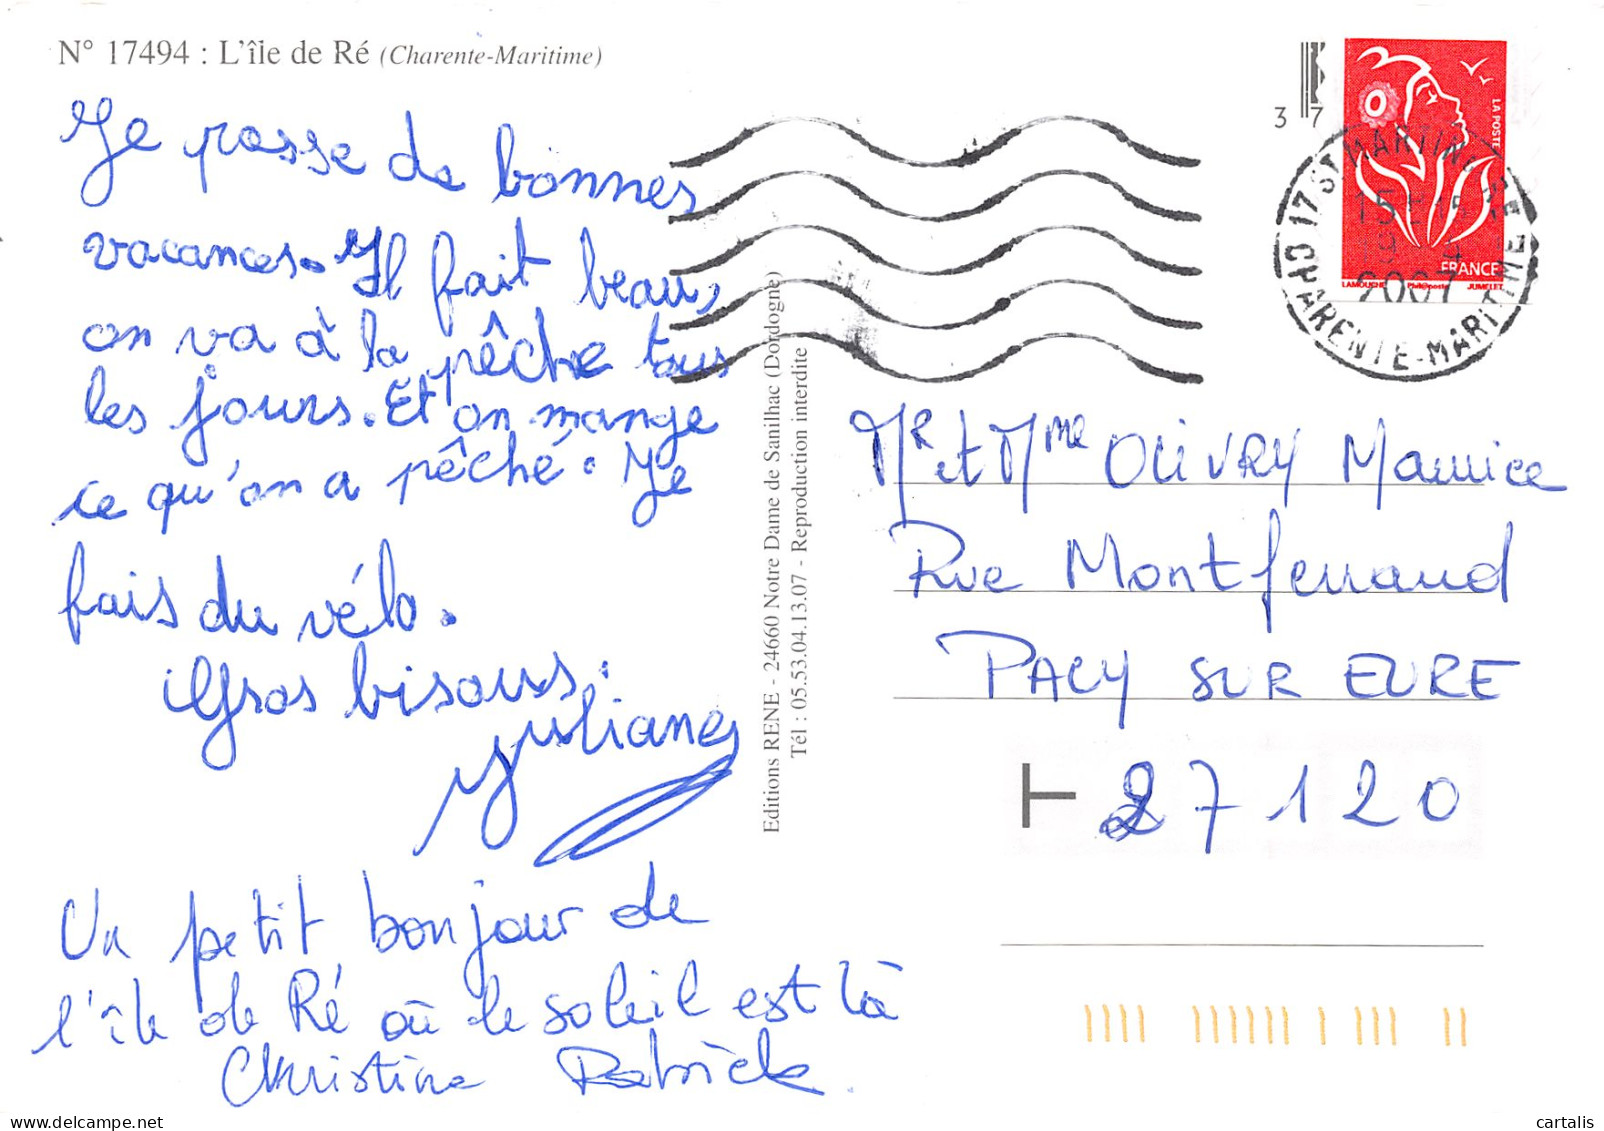 N° 17494 : L'île de Ré (Charente-Maritime)
Je passe de bonnes
vacances. Il fait beau,
on va à la pêche tous
les jours. Et on mange
ce qu'on a pêché. Je
fais du vélo.
Gros bisous.
Julianes
Un petit bonjour de
l'île de Ré où le soleil est là
Christine Patrick.
Editions RENE - 24660 Notre Dame de Sanilhac (Dordogne)
Tél : 05.53.04.13.07 - Reproduction interdite
3 7
LA POSTE
FRANCE
LAMOUCHE Phil@poste JUMELET
17 ST MARTIN DE RE
15H15
2007
CHARENTE-MARITIME
Mr et Mme OLIVRY Maurice
Rue Montferrand
PACY SUR EURE
27120
cartalis
delcampe.net